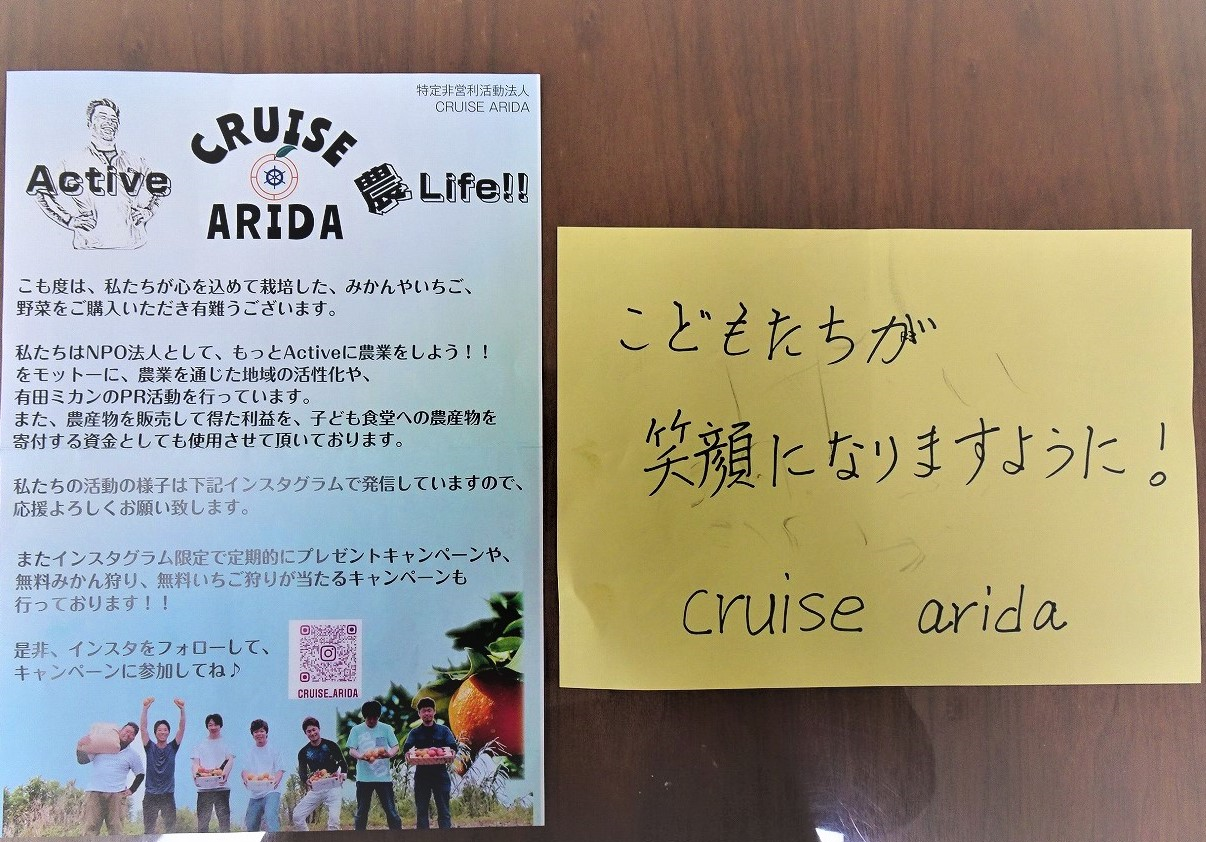 特定非営利活動法人
CRUISE ARIDA
CRUISE
ARIDA
Active 農 Life!!
こも度は、私たちが心を込めて栽培した、みかんやいちご、
野菜をご購入いただき有難うございます。
私たちはNPO法人として、もっとActiveに農業をしよう！！
をモットーに、農業を通じた地域の活性化や、
有田ミカンのPR活動を行っています。
また、農産物を販売して得た利益を、子ども食堂への農産物を
寄付する資金としても使用させて頂いております。
私たちの活動の様子は下記インスタグラムで発信していますので、
応援よろしくお願い致します。
またインスタグラム限定で定期的にプレゼントキャンペーンや、
無料みかん狩り、無料いちご狩りが当たるキャンペーンも
行っております！！
是非、インスタをフォローして、
キャンペーンに参加してね♪
CRUISE_ARIDA
こどもたちが
笑顔になりますように！
cruise arida